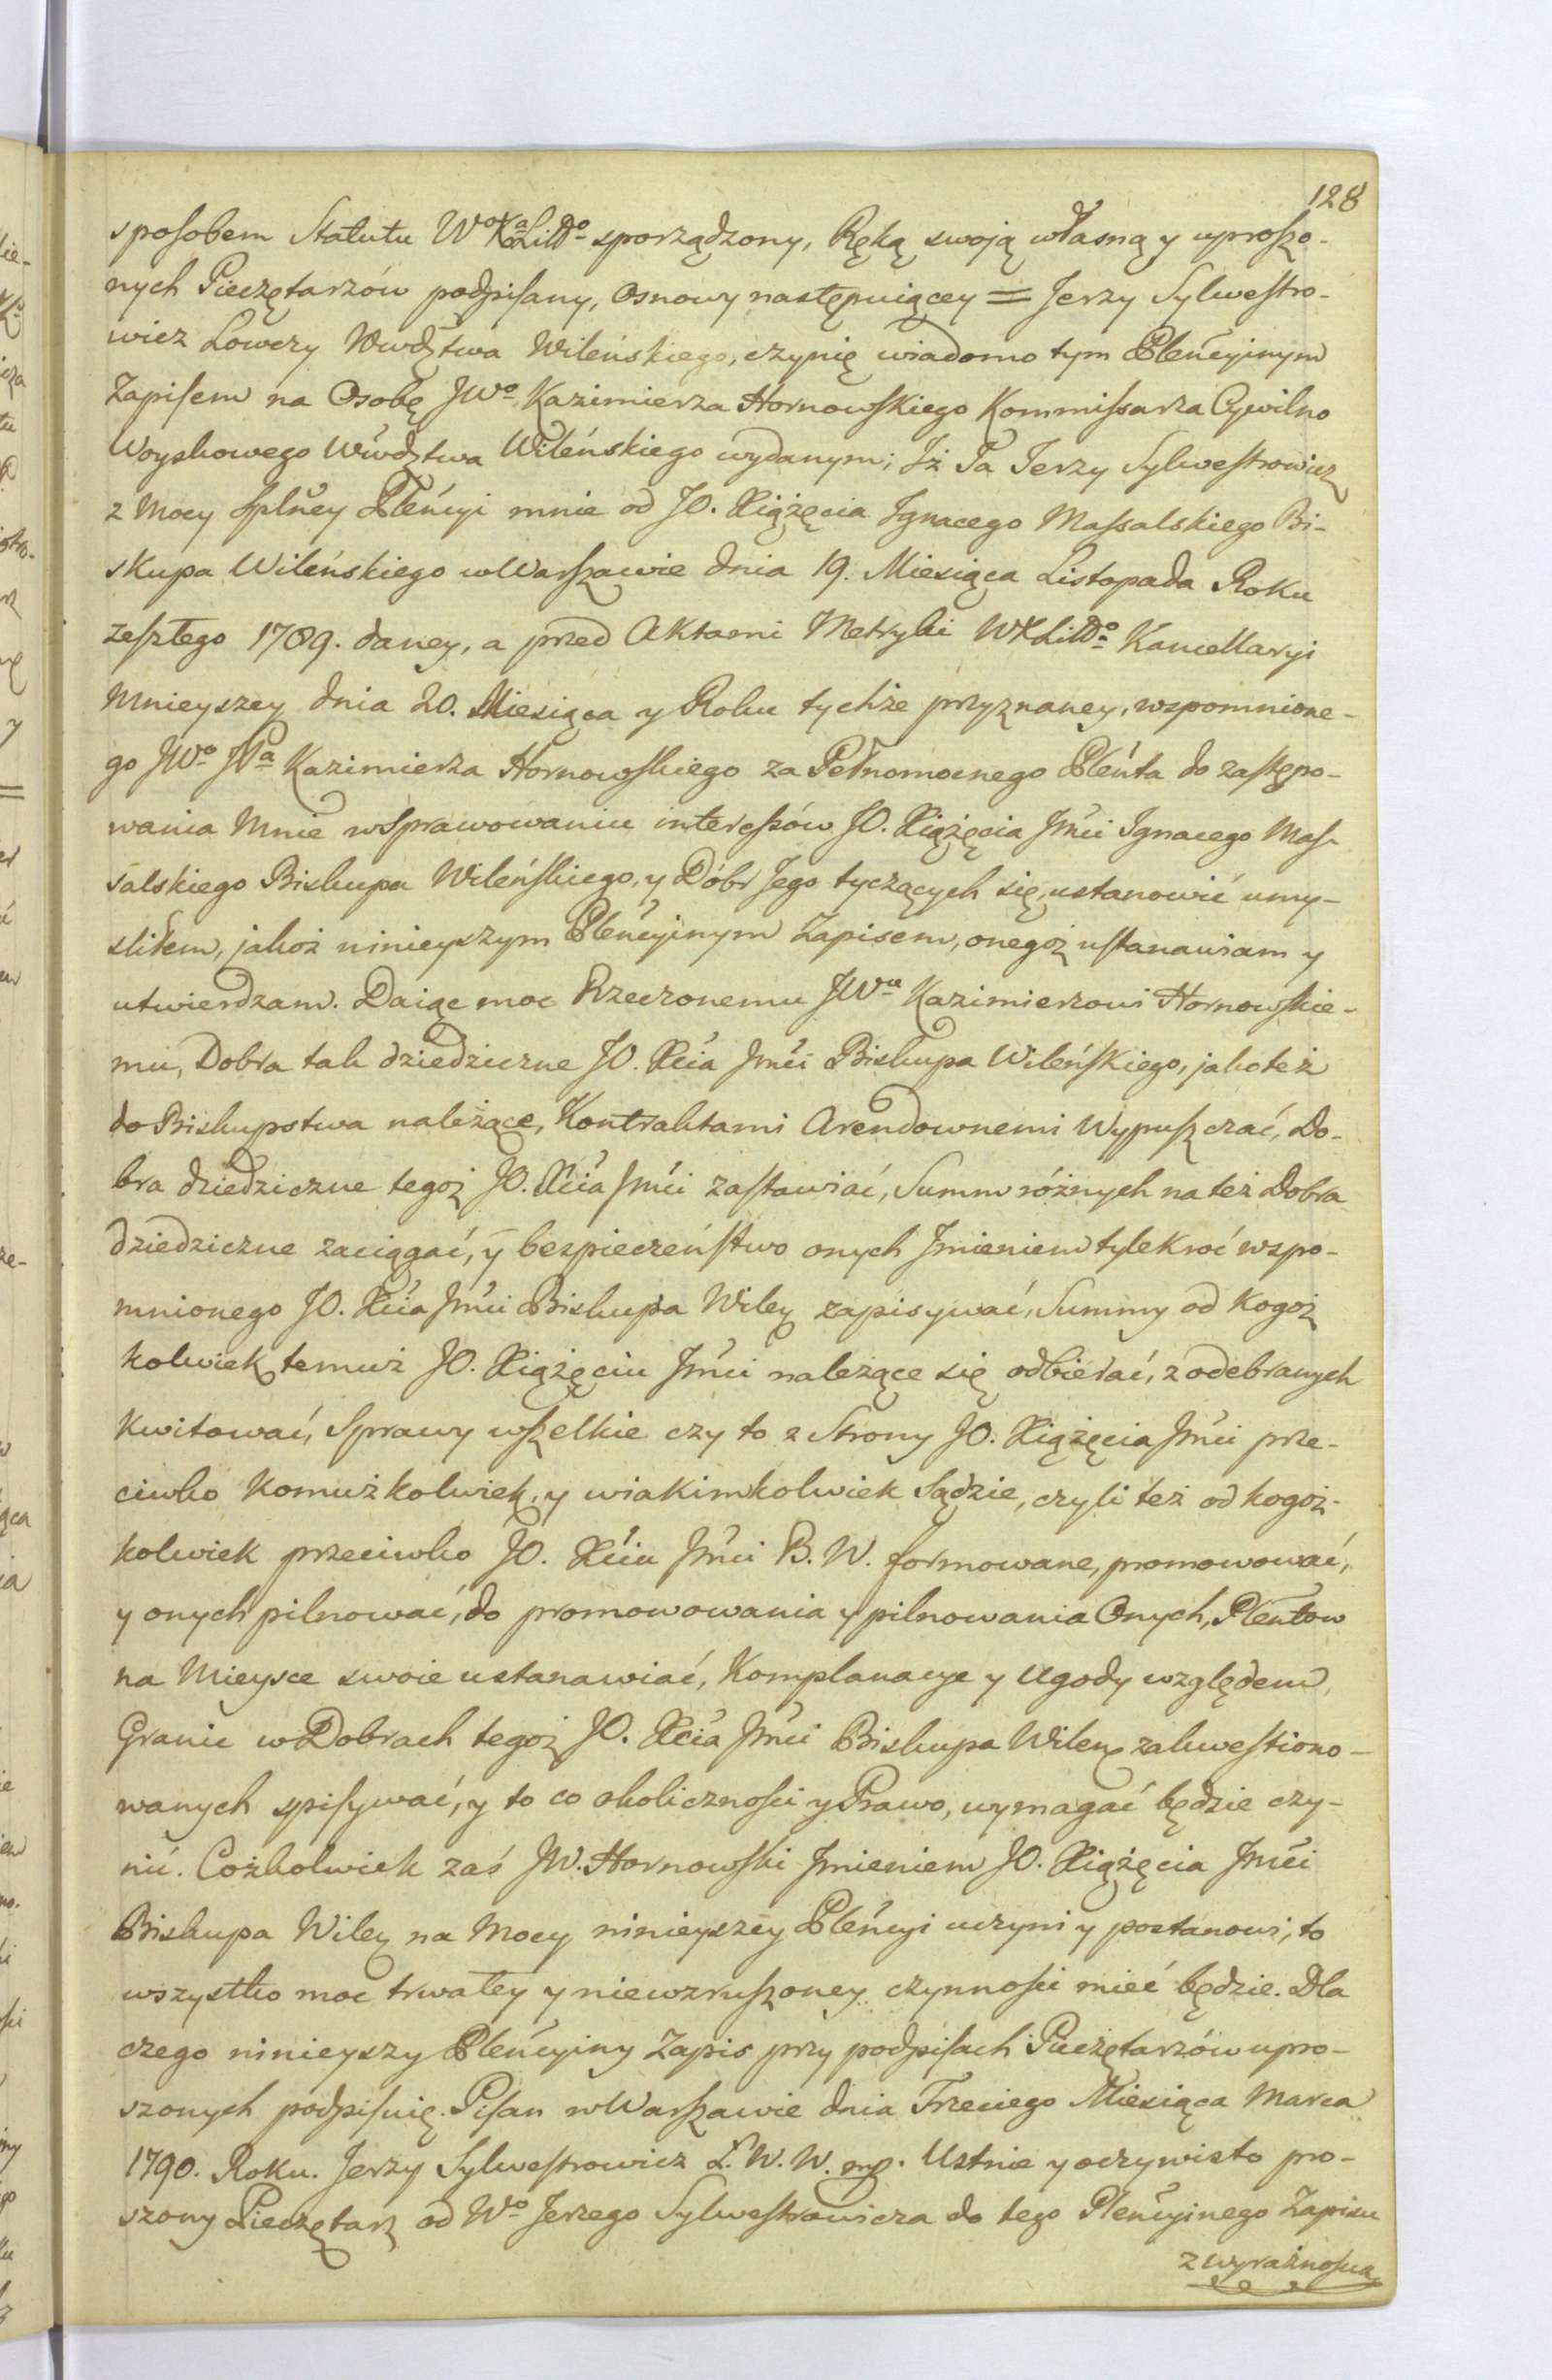 128
sposobem Statutu Wo Xa Litto sporządzony, Ręką swoją własną y uproszo-
nych Pieczętarzów podpisany, Osnowy następuiącey = Jerzy Sylwestro-
wicz Łowczy Wwdztwa Wileńskiego, czynię wiadomo tym Plencyinym
Zapisem na Osobę JWo Kazimierza Hornowskiego Kommissarza Cywilno
Woyskowego Wwdztwa Wileńskiego wydanym; Iż Ja Jerzy Sylwestrowicz
z Mocy Splney Plencyi mnie od JO. Xiążęcia Ignacego Massalskiego Bi-
skupa Wileńskiego w Warszawie dnia 19. Miesiąca Listopada Roku
zeszłego 1789. daney, a przed Aktami Metryki WXLitto Kancellaryi
Mnieyszey dnia 20. Miesiąca y Roku tychże przyznaney, wspomnione-
go JWo JPa Kazimierza Hornowskiego za Pełnomocnego Plenta do zastępo-
wania Mnie w Sprawowaniu interessów JO. Xiążęcia Jmci Ignacego Mas-
salskiego Biskupa Wileńskiego, y Dóbr Jego tyczących się, ustanowić umy-
sliłem, jakoż ninieyszym Plencyinym Zapisem, onegoż ustanawiam y
utwierdzam. Daiąc moc Rzeczonemu JWa Kazimierzowi Hornowskie-
mu, Dobra tak dziedziczne JO. Xcia Jmci Biskupa Wileńskiego, jakoteż
do Biskupstwa należące, Kontraktami Arendownemi Wypuszczać, Do-
bra dziedziczne tegoż JO. Xcia Jmci zastawiać, Summ różnych na też Dobra
dziedziczne zaciągać, y bezpieczeństwo onych Imieniem tylekroć wspo-
mnionego JO. Xcia Jmci Biskupa Wileg zapisywać, Summy od Kogoż
kolwiek temuż JO. Xiążęciu Jmci należące się odbierać, z odebranych
Kwitować, Sprawy wszelkie czy to z Strony JO. Xiążęcia Jmci prze-
ciwko Komużkolwiek, y wiakimkolwiek Sądzie, czyli też od kogoż-
kolwiek przeciwko JO. Xciu Jmci B. W. formowane, promowować,
y onych pilnować, do promowowania y pilnowania Onych, Plentow
na Mieysce swoie ustanawiać, Komplanacye y Ugody względem
Granic w Dobrach tegoż JO. Xcia Jmci Biskupa Wileg zakwestiono-
wanych spisywać, y to co okoliczności y Prawo, wymagać będzie czy-
nić. Cożkolwiek zaś JW. Hornowski Imieniem JO. Xiążęcia Jmci
Biskupa Wileg na Mocy ninieyszey Plencyi uczyni y postanowi, to
wszystko moc trwałey y niewzruszoney czynności mieć będzie. Dla
czego ninieyszy Plencyiny Zapis przy podpisach Pieczętarzów upro-
szonych podpisuię. Pisan w Warszawie dnia Trzeciego Miesiąca Marca
1790. Roku. Jerzy Sylwestrowicz Ł. W. W. mp. Ustnie y oczywisto pro-
szony Pieczętarz od Wo Jerzego Sylwestrowicza do tego Plencyinego Zapisu
z wyraźnością